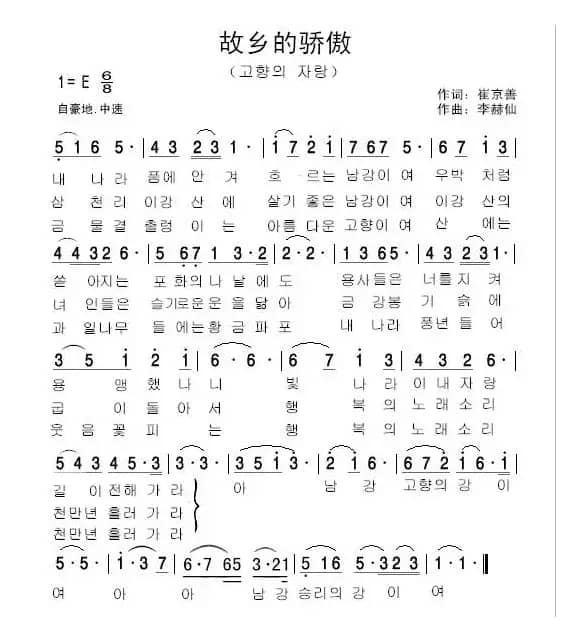 故乡的骄傲
(고향의 자랑)
1= E 6/8
自豪地.中速
作词: 崔京善
作曲: 李赫仙
5 1 6 5 · | 4 3 2 3 1 · | 1 7 2 1 | 7 6 7 6 5 | 6 7 1 3 |
내 나라 품에 안 겨 흐 - 르는 남강이 여 우박 처럼
삼 천리 이강 산에 살기 좋은 남강이 여 이강 산의
금 물결 출렁 이 는 아름 다운 고향이 여 산 에는
4 4 3 2 6 · | 5 6 7 1 3 · 2 | 2 · 2 · | 1 3 6 5 · | 4 3 2 3 1 · |
쏟 아지는 포 화의 나 날 에 도 용사 들은 너를 지 켜
녀 인들은 슬기로운 운 을 닮 아 금 강봉 기 슭 에
과 일나무 들 에는 황 금 파 포 내 나라 풍년 들 어
3 5 1 2 1 | 6 · 6 · | 6 7 1 3 1 | 4 3 2 6 |
용 맹 했 나 니 빛 나 라 이 내 자 랑
굽 이 돌 아 서 행 복 의 노 래 소 리
웃 음 꽃 피 는 행 복 의 노 래 소 리
5 4 3 4 5 · | 3 · 3 · | 3 5 1 3 · | 2 1 6 · | 6 7 2 1 6 · 1 |
길 이 전해 가 라 아 남 강 고향의 강 이
천만년 흘러 가 라
천만년 흘러 가 라
5 · 5 · | 1 · 3 7 | 6 · 7 6 5 | 3 · 2 1 | 5 1 6 | 5 · 3 2 3 | 1 · 1 · ‖
여 아 아 남 강 승리의 강 이 여